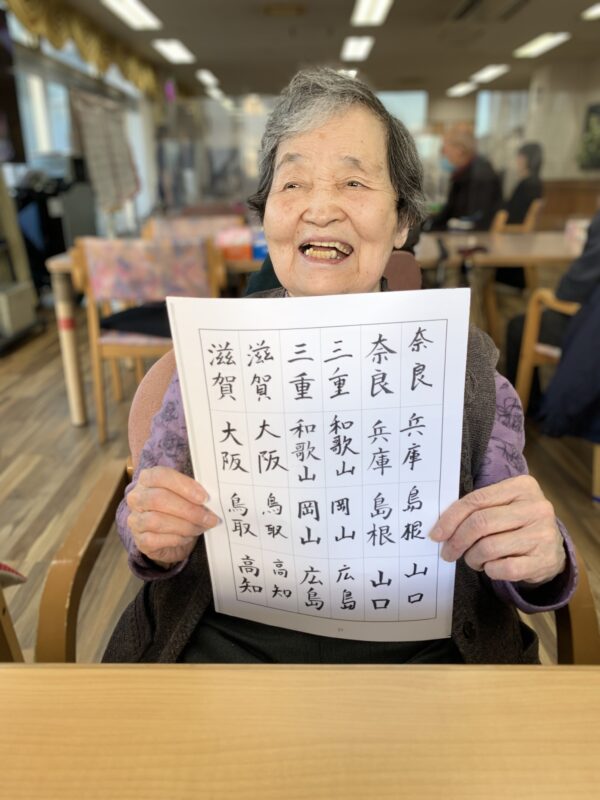 奈良 兵庫 島根 山口
奈良 兵庫 島根 山口
三重 和歌山 岡山 広島
三重 和歌山 岡山 広島
滋賀 大阪 鳥取 高知
滋賀 大阪 鳥取 高知